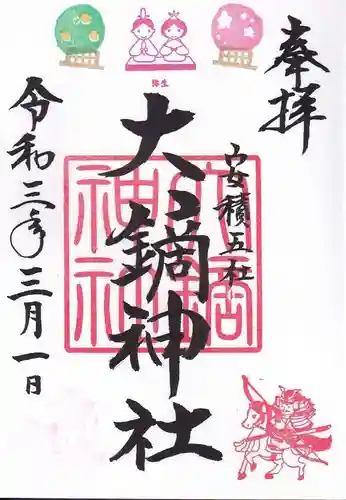 奉拝
安積五社
大鏑神社
令和三年三月一日
弥生